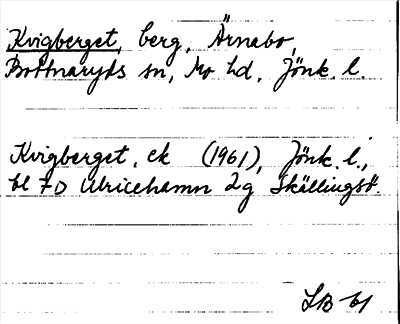 Kvigberget, berg, Ärnabo,
Bottnaryds sn, Mo hd, Jönk. l.
Kvigberget, ek (1961), Jönk. l.,
bl 7D Ulricehamn 2g Skällingsö.